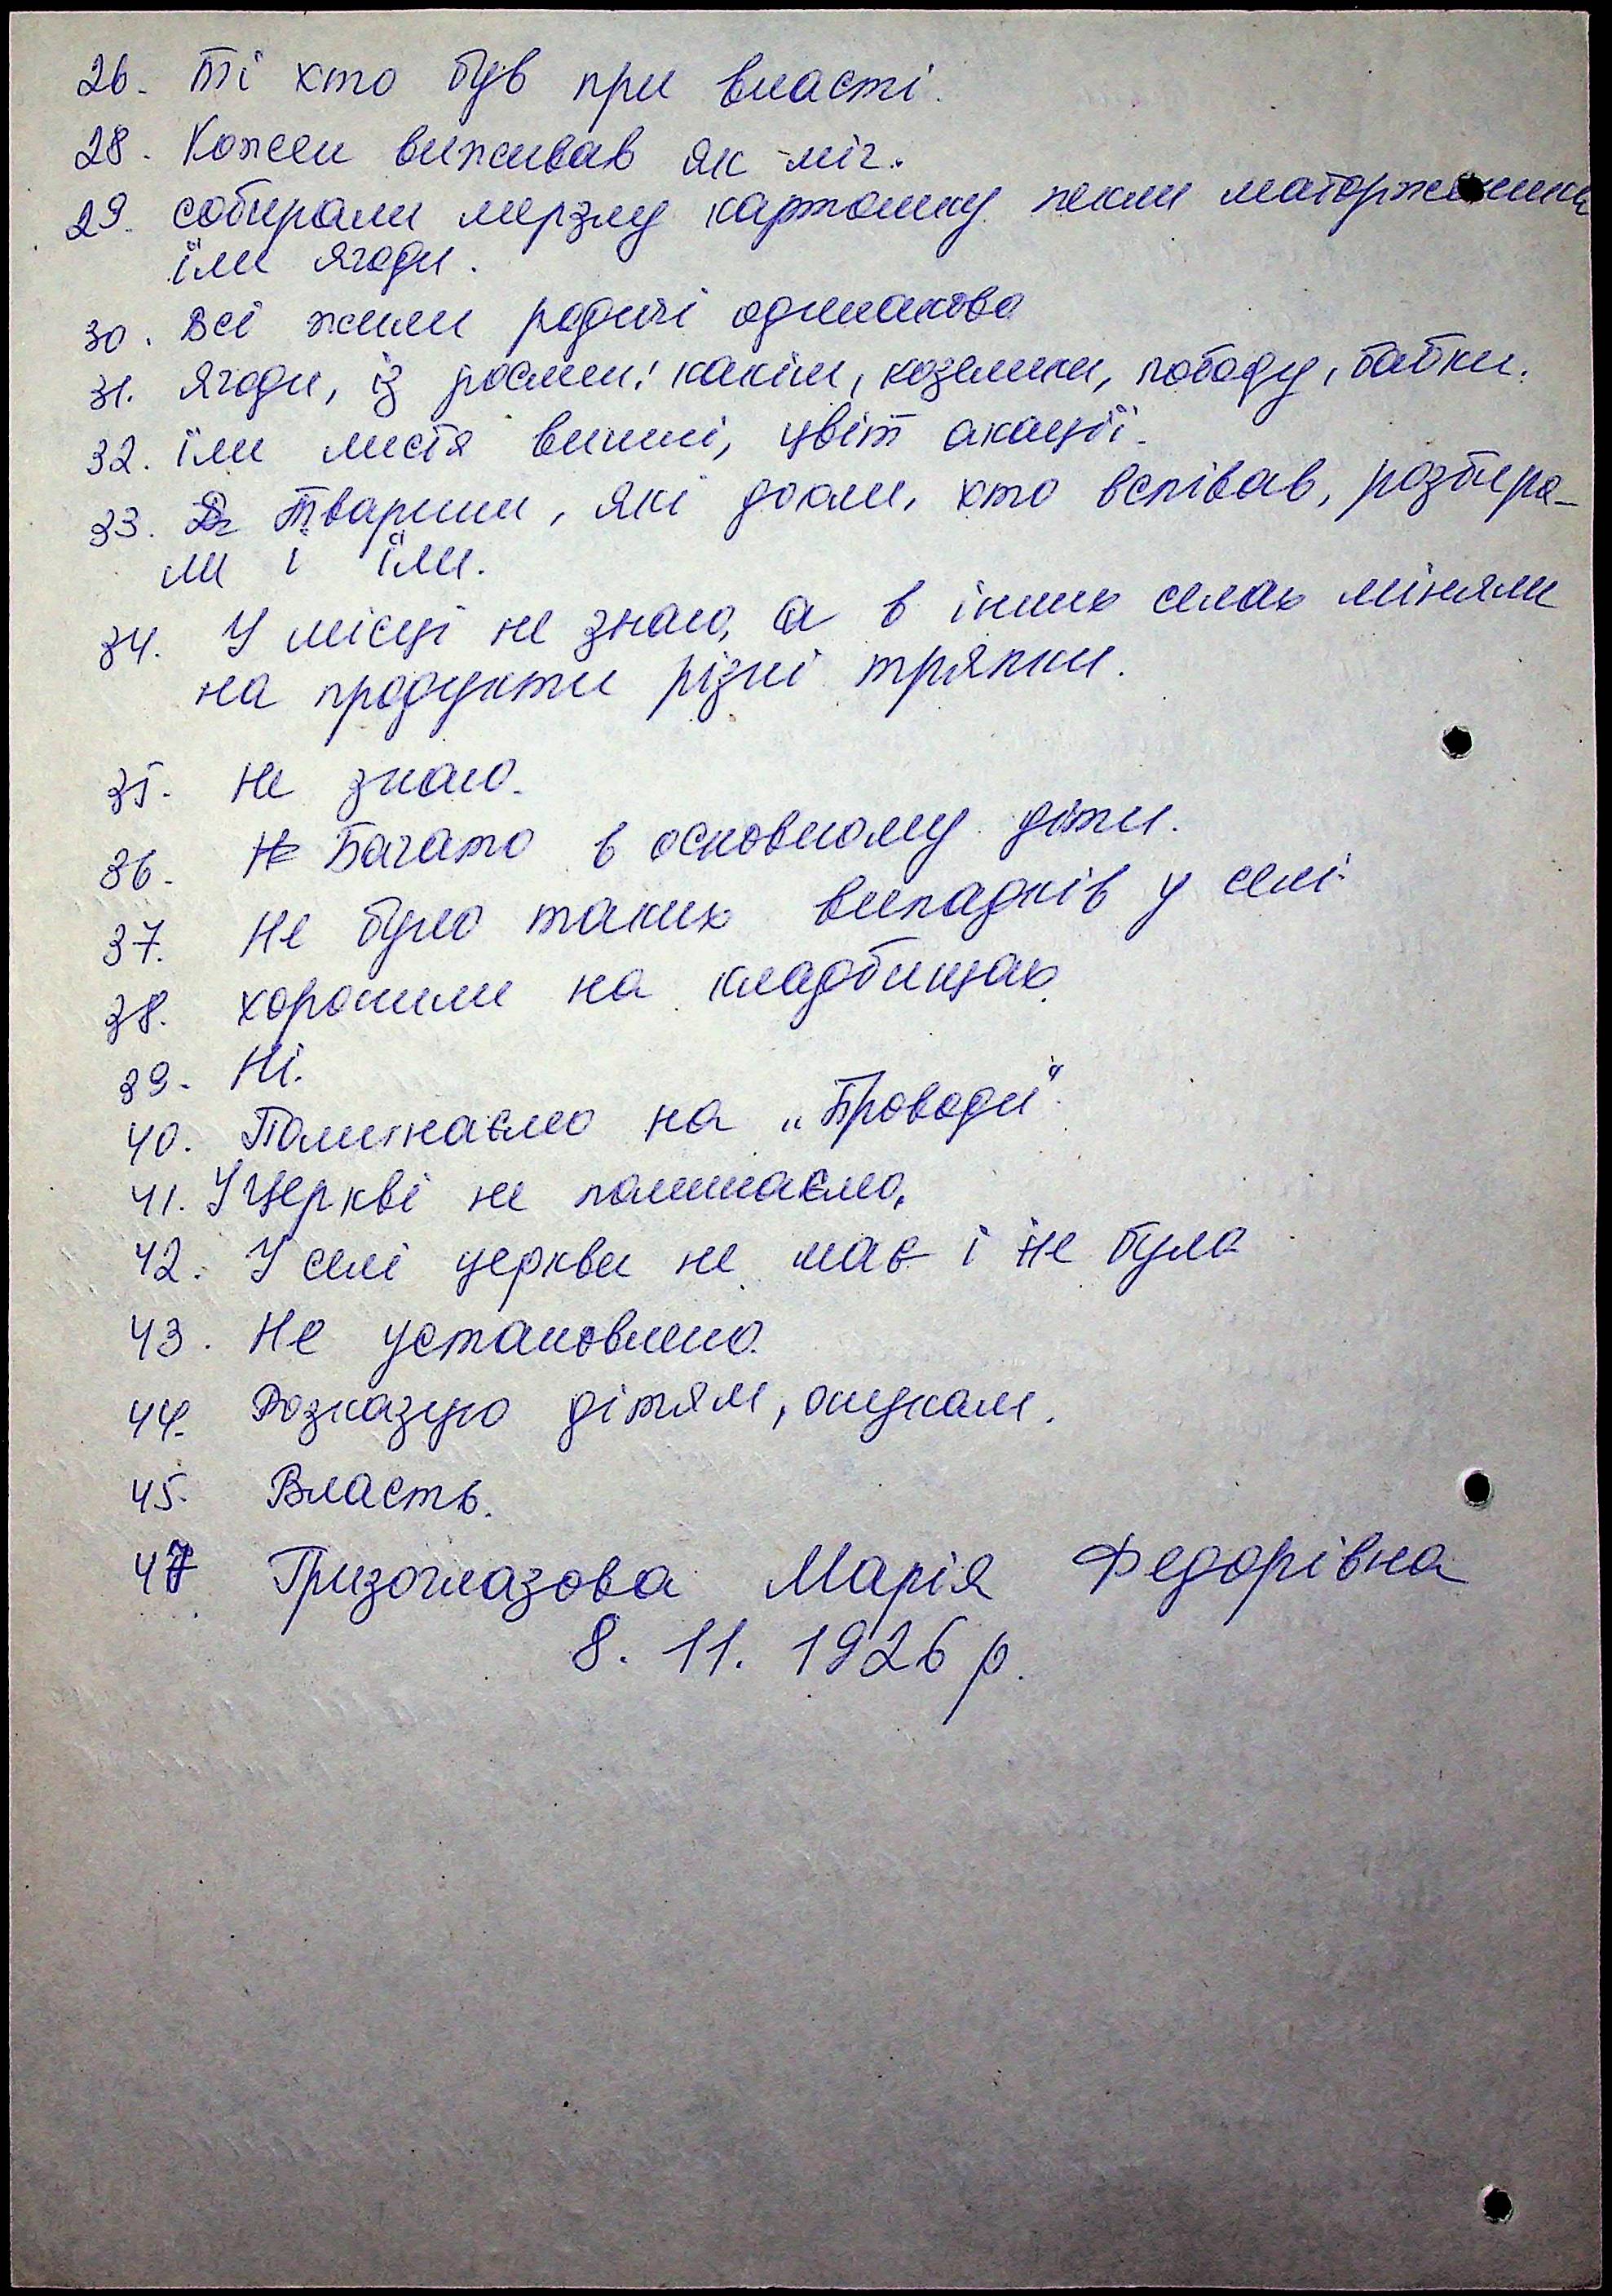 26. Ті хто був при власті.
28. Кожен виживав як міг.
29. собирали мерзлу картошку пекли
їли ягоди.
30. Всі жили родичі одинаково
31. Ягоди, із рослин: калачики, козелики, лободу, бабки.
32. їли листя вишні, цвіт акації.
33. Тварини, які дохли, хто вспівав, розбира-
ли і їли.
34. У місці не знаю, а в інших селах міняли
на продукти різні тряпки.
35. Не знаю.
36. Багато в основному діти.
37. Не було таких випадків у селі.
38. хоронили на кладбищах.
39. Ні.
40. Поминаємо на „Проводи".
41. У Церкві не поминаємо.
42. У селі церкви не має і не було
43. Не установлено.
44. Розказую дітям, онукам.
45. Власть.
47 Гризоглазова Марія Федорівна
8. 11. 1926 р.